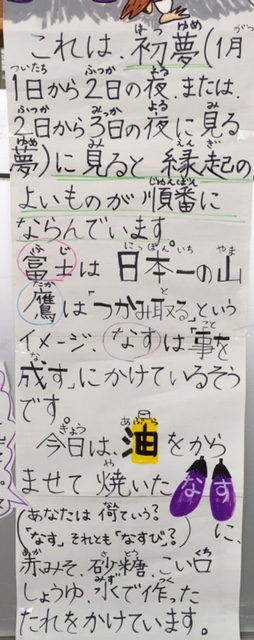 これは、初夢(1月
1日から2日の夜、または、
2日から3日の夜に見る
夢)に見ると縁起の
よいものが順番に
ならんでいます。
富士は日本一の山
鷹は「つかみ取る」という
イメージ、なすは「事を
成す」にかけているそう
です。
今日は、油をから
ませて焼いたなす
(あなたは何ていう?
「なす」それとも「なすび」?)に、
赤みそ、砂糖、こい口
しょうゆ、水で作った
たれをかけています。